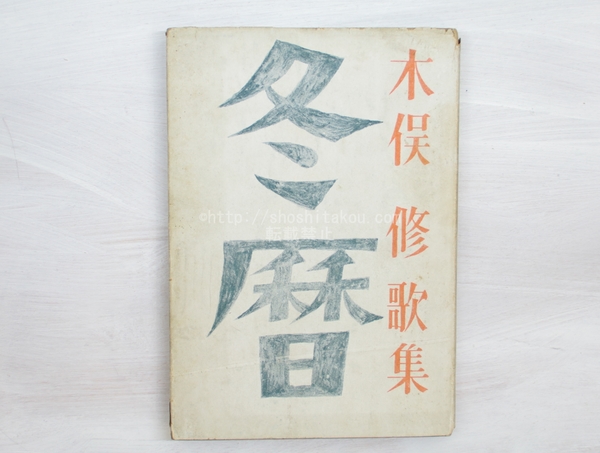 木俣修歌集
冬暦
©http://shoshitakou.com/
転載禁止